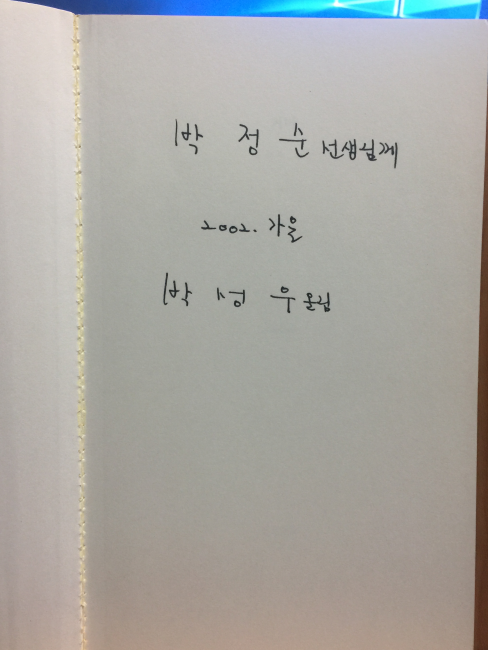 박 정 순 선생님께
2002. 가을
박 성 우 올림